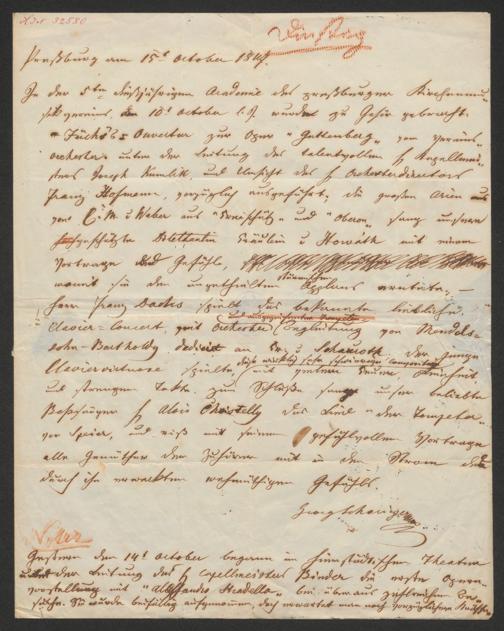 Preßburg am 15t October 184
In der 5ten dießjährigen Academie des preßburger Kirchenmu-
sikvereins, den 10t October l. J. wurden zu Gehör gebracht.
Fuchs's Ouvertur zur Oper „Guttenberg" vom Vereins-
orchester unter der Leitung des talentvollen H Kapellmei-
sters Joseph Kumlik, und Umsicht des H Orchesterdirectors
Franz Hofmann, vorzüglich ausgeführt; die großen Arien aus
von C. M v Weber aus „Freischütz" und „Oberon" sang unsere
geschätzte Fräulein v Horváth mit einem
Vortrage und Gefühle,
womit sie den ungetheilten stürmischen Applaus erntete. —
Herr Franz spielte das bekannte liebliche
Clavier-Concert, mit Orchester Begleitung von Mendels-
sohn-Bartholdy, dedicirt an Fr. v Schauroth. Der junge
Claviervirtuose spielte mit Reinheit
und strengem Takte. Zum Schluße sang unser beliebte
Baßsänger H Alois das Lied „der
von Speier, und riß mit seinem gefühlvollen Vortrage
alle Gemüther der Zuhörer mit in den Strom des
durch ihn erweckten wehmüthigen Gefühls.
Gestern den 14t October begann im hierstädtischen Theater
unter der Leitung des H Capellmeisters Binder die erste Opern-
vorstellung mit „Alessandro Stradella" bei überaus zahlreichem Be-
suche. Sie wurde beifällig aufgenommen, doch erwartet man noch